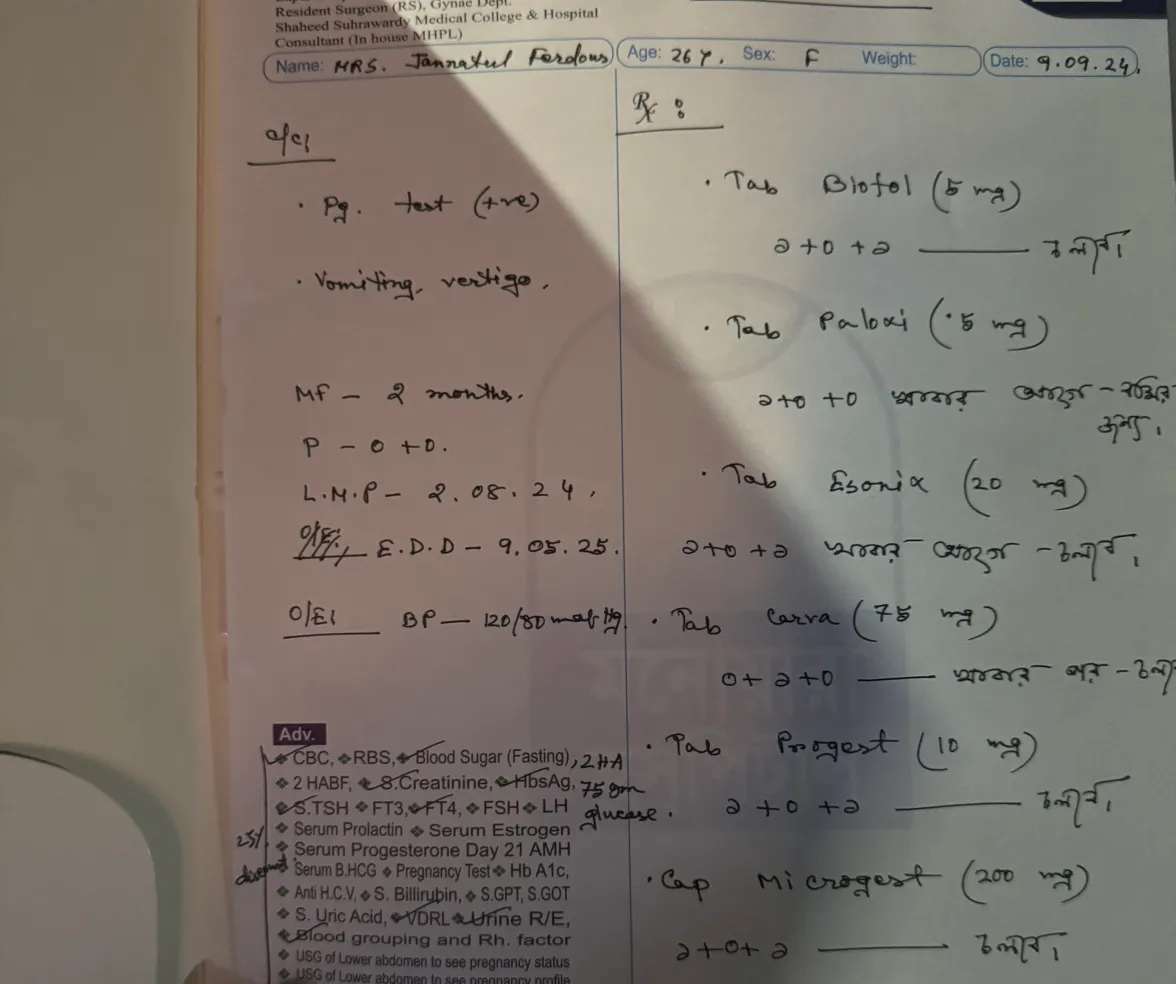 Resident Surgeon (RS), Gynae Dept.
Shaheed Suhrawardy Medical College & Hospital
Consultant (In house MHPL)
Name: MRS. Jannatul Ferdous Age: 26 Y. Sex: F Weight: Date: 9.09.24.
C/C/
• Pg. test (+ve)
• Vomiting, vertigo.
MF – 2 months.
P – 0 + 0.
L.M.P – 2.08.24.
E.D.D – 9.05.25.
O/E/ BP – 120/80 mm of Hg
Adv.
CBC, RBS, Blood Sugar (Fasting), 2HA
2 HABF, S.Creatinine, HbsAg, 75 gm
S.TSH FT3, FT4, FSH LH glucose.
Serum Prolactin Serum Estrogen
25%
Serum Progesterone Day 21 AMH
Serum B.HCG Pregnancy Test Hb A1c,
Anti H.C.V, S. Billirubin, S.GPT, S.GOT
S. Uric Acid, VDRL Urine R/E,
Blood grouping and Rh. factor
USG of Lower abdomen to see pregnancy status
USG of Lower abdomen to see pregnancy profile
Rx :
• Tab Biofol (5 mg)
১+0+১ — চলবে।
• Tab Paloxi (.5 mg)
১+0+0 খাবার আগে – বমির
জন্য।
• Tab Esonix (20 mg)
১+0+১ খাবার আগে – চলবে।
• Tab Carva (75 mg)
0+১+0 — খাবার পর –
• Tab Progest (10 mg)
১+0+১ — চলবে।
• Cap Microgest (200 mg)
১+0+১ — চলবে।